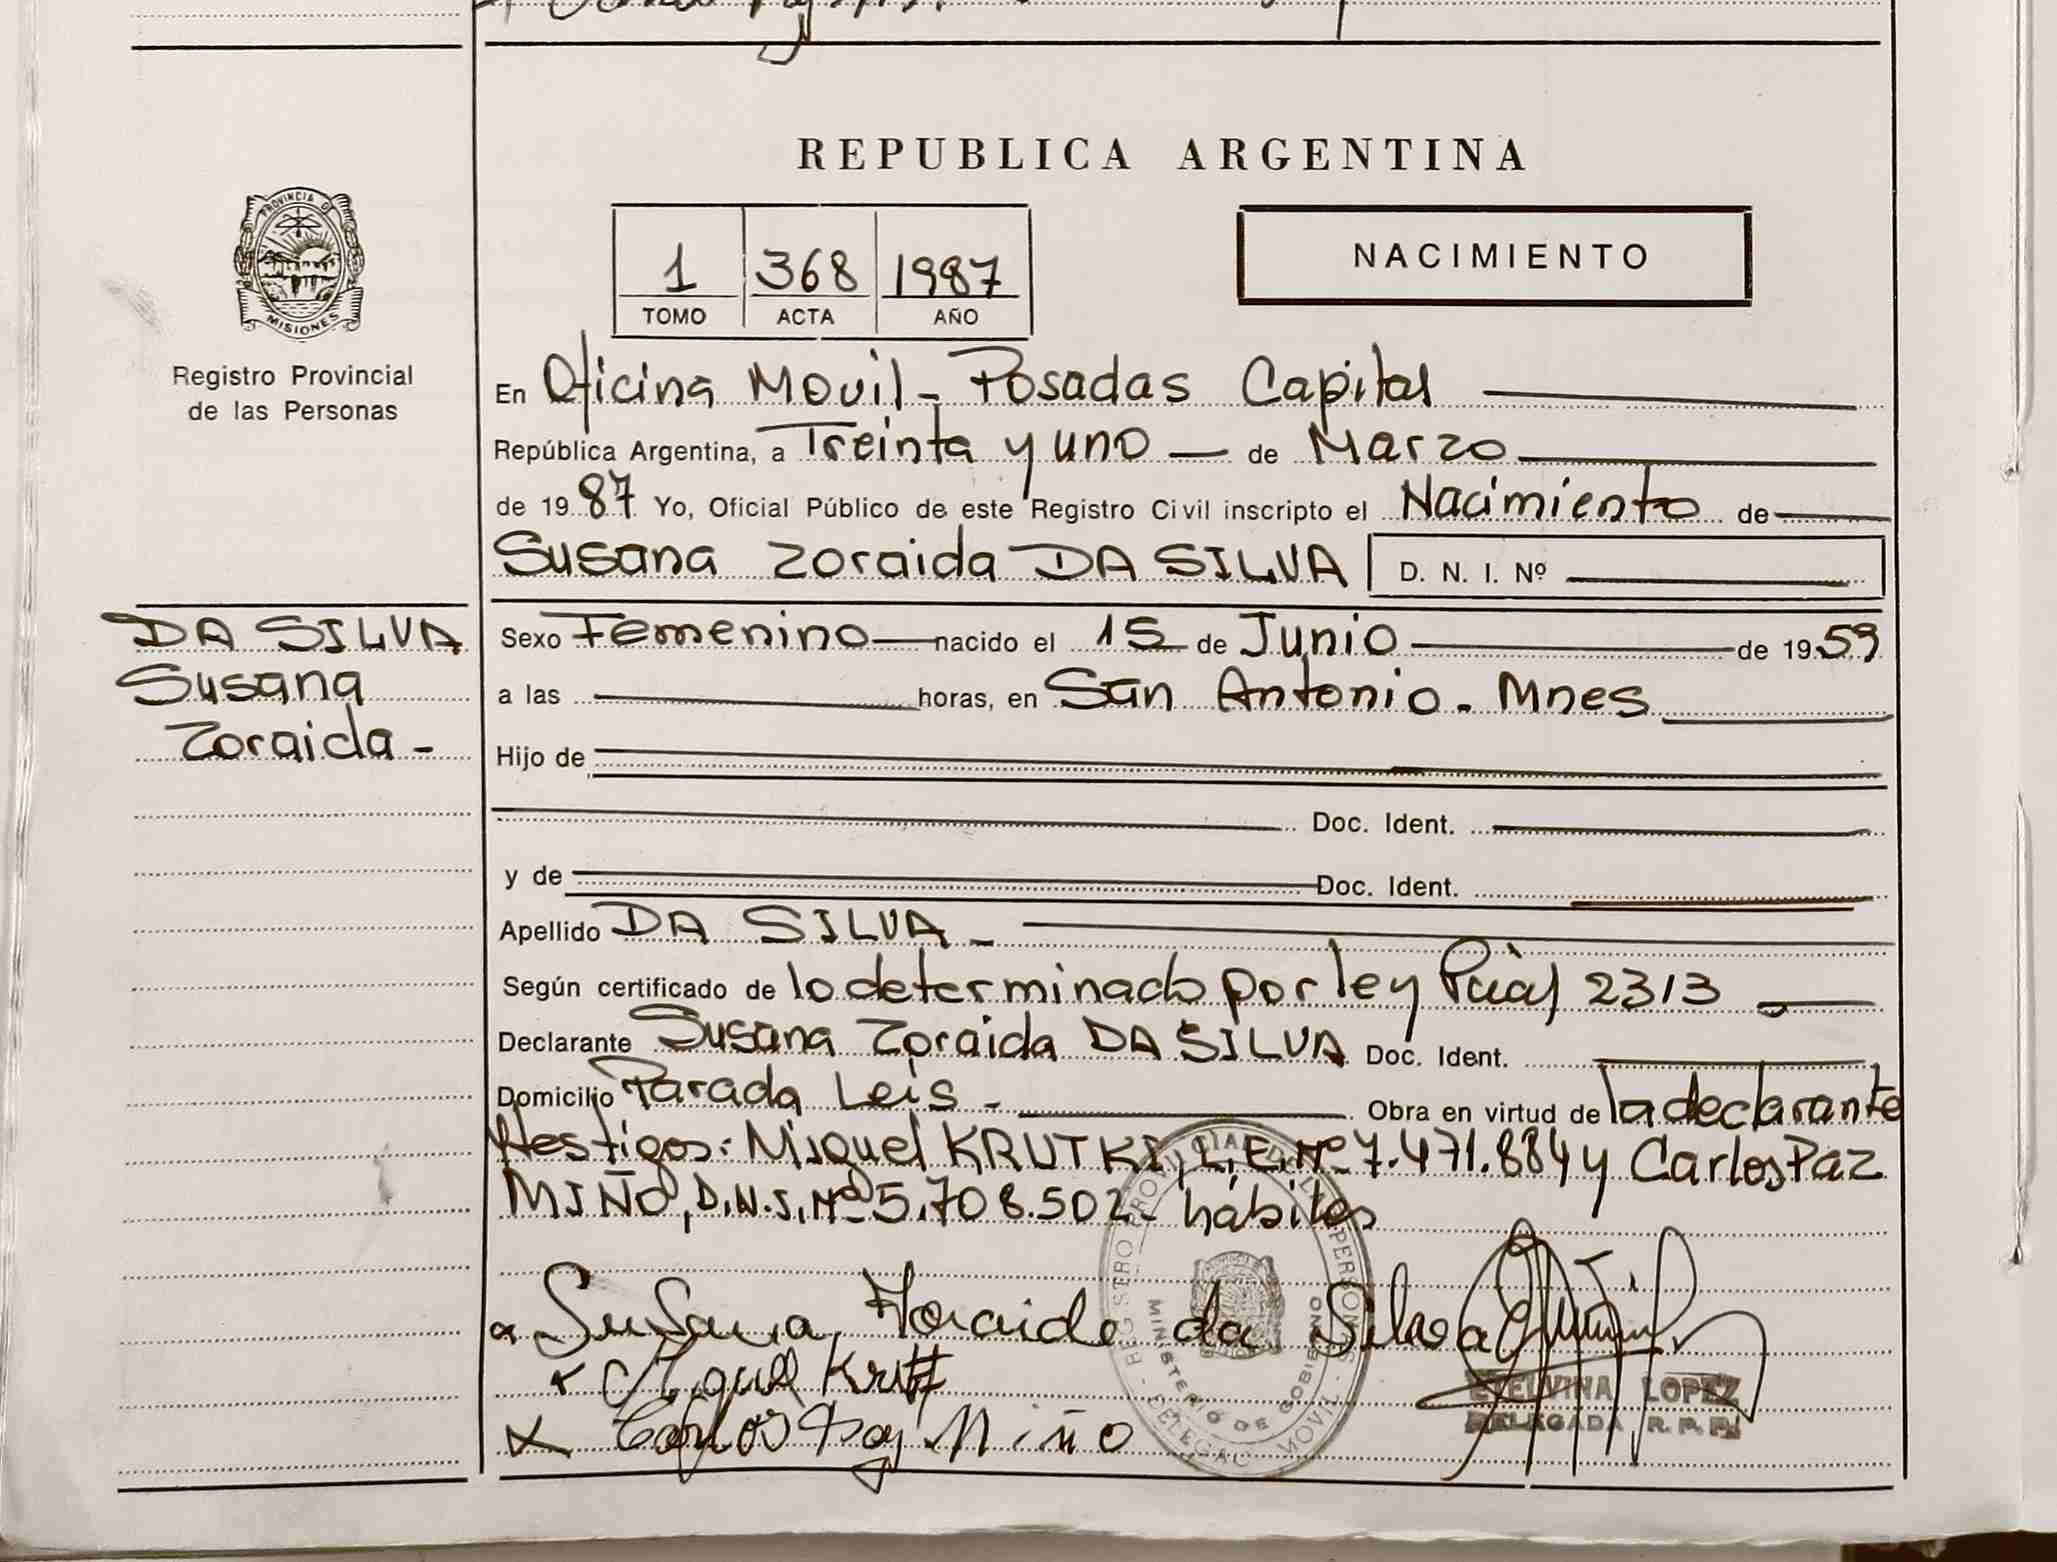 REPUBLICA ARGENTINA
PROVINCIA D
MISIONES
Registro Provincial
de las Personas
1 368 1987
TOMO ACTA AÑO
NACIMIENTO
En Oficina Movil - Posadas Capital
República Argentina, a Treinta y uno — de Marzo
de 1987 Yo, Oficial Público de este Registro Civil inscripto el Nacimiento de
Susana Zoraida DA SILVA D. N. I. Nº
DA SILVA
Susana
Zoraida -
Sexo Femenino nacido el 15 de Junio de 1959
a las horas, en San Antonio - Mnes
Hijo de
Doc. Ident.
y de Doc. Ident.
Apellido DA SILVA -
Según certificado de lo determinado por ley 2313
Declarante Susana Zoraida DA SILVA Doc. Ident.
Domicilio Parada Leis - Obra en virtud de la declarante
testigos: Miguel KRUTKI, L.E. Nº 7.471.884 y Carlos Paz
MIÑO, D.N.I. Nº 5.708.502 - hábiles
Susana Zoraida da Silva
Miguel
Carlos Paz Miño
REGISTRO PROVINCIAL DE LAS PERSONAS
MINISTERIO DE GOBIERNO
DELEGAC. MOVIL
ETELVINA LOPEZ
DELEGADA R. P. P.